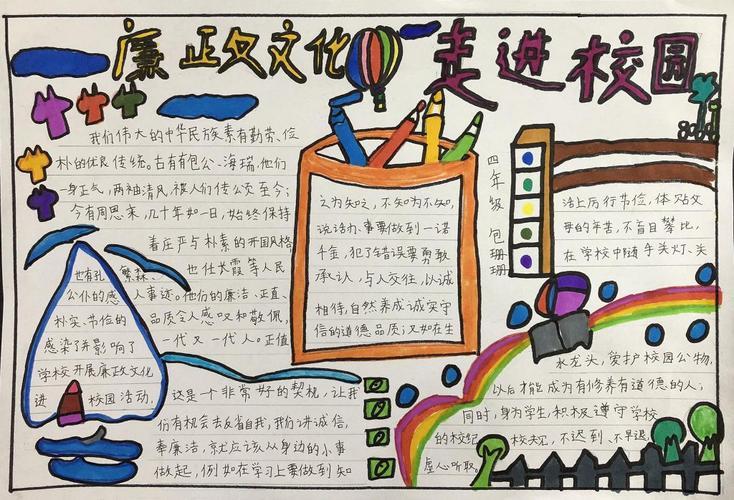 廉政文化 走进校园
我们伟大的中华民族素有勤劳、俭
朴的优良传统。古有包公、海瑞,他们
一身正气,两袖清风,被人们传颂至今;
今有周恩来,几十年如一日,始终保持
着庄严与朴素的开国风格
也有孔繁森、也任长霞等人民
公仆的感人事迹。他们的廉洁、正直、
朴实、节俭的品质令人感叹和敬佩,
感染了并影响了一代又一代人。正值
学校开展廉政文化
进校园活动,这是一个非常好的契机,让我
们有机会去反省自我,我们讲诚信,
奉廉洁,就应该从身边的小事
做起,例如在学习上要做到知
之为知之,不知为不知,
说话办事要做到一诺
千金,犯了错误要勇敢
承认,与人交往,以诚
相待,自然养成诚实守
信的道德品质;又如在生
四年级 包珊珊
活上厉行节俭,体贴父
母的辛苦,不盲目攀比,
在学校中随手关灯、关
水龙头,爱护校园公物,
以后才能成为有修养有道德的人;
同时,身为学生,积极遵守学校
的校纪校规,不迟到、不早退,
虚心听取。